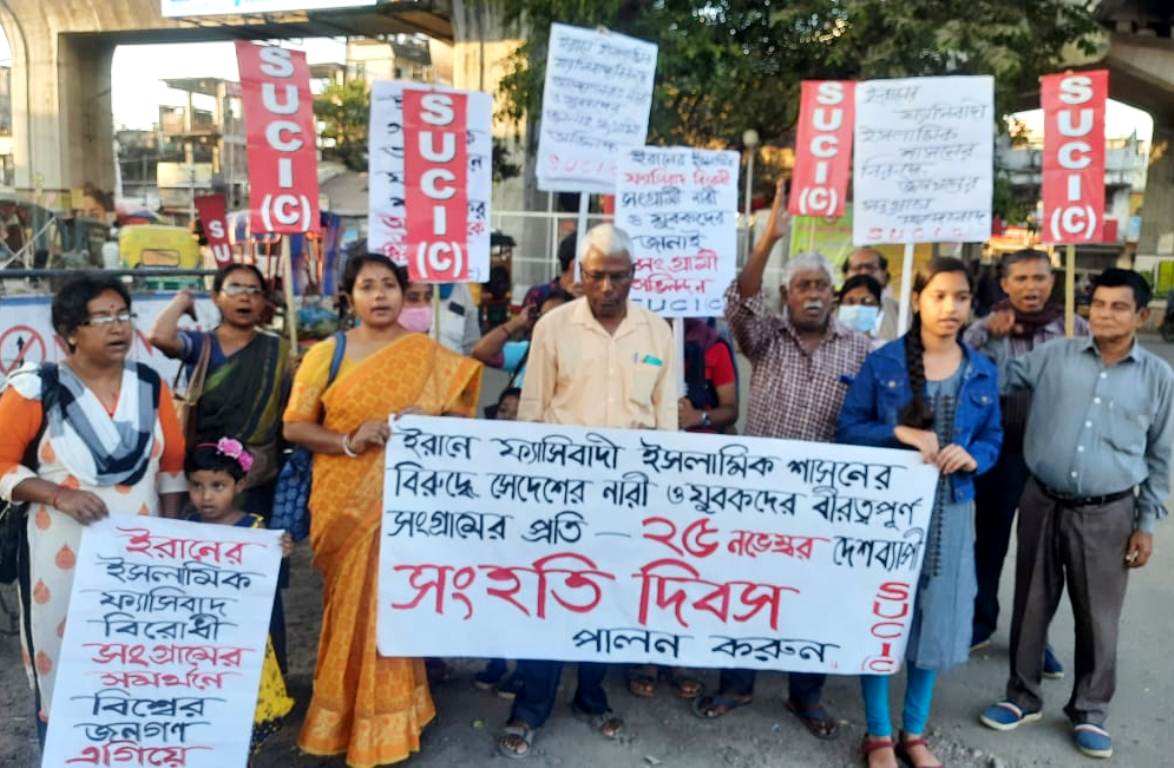 SUCI(C)
SUCI(C)
SUCI(C)
SUCI(C)
SU
ইরানের ইসলামি
ফ্যাসিবাদ বিরোধী
সংগ্রামী নারী
ও যুবকদের
জানাই
সংগ্রামী
অভিনন্দন
SUCIC
ইরানে
ফ্যাসিবাদী
ইসলামিক
শাসনের
বিরুদ্ধে
জনগণের
সংগ্রাম
জিন্দাবাদ
SUCIC
ইরানে ফ্যাসিবাদী ইসলামিক শাসনের
বিরুদ্ধে সেদেশের নারী ও যুবকদের বীরত্বপূর্ণ
সংগ্রামের প্রতি — ২৫ নভেম্বর দেশব্যাপী
সংহতি দিবস
পালন করুন
SUCI(C)
ইরানের
ইসলামিক
ফ্যাসিবাদ
বিরোধী
সংগ্রামের
সমর্থনে
বিশ্বের
জনগণ
এগিয়ে